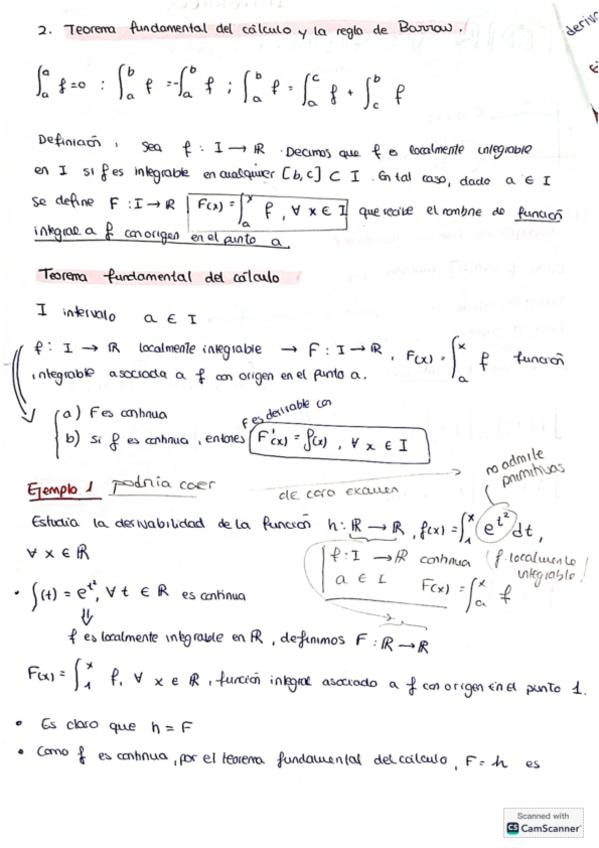 2. Teorema fundamental del cálculo y la regla de Barrow.
deriv
∫_a^a f=0 : ∫_a^b f = -∫_a^b f ; ∫_a^b f = ∫_a^c f + ∫_c^b f
Definición, sea f : I → ℝ. Decimos que f es localmente integrable
en I si f es integrable en cualquier [b,c] ⊂ I. En tal caso, dado a ∈ I
se define F : I → ℝ F(x) = ∫_a^x f, ∀ x ∈ I que recibe el nombre de función
integral a f con origen en el punto a.
Teorema fundamental del cálculo
I intervalo a ∈ I
f : I → ℝ localmente integrable → F : I → ℝ, F(x) = ∫_a^x f función
integrable asociada a f con origen en el punto a.
a) F es continua
F es derivable con
b) si f es continua, entonces F'(x) = f(x), ∀ x ∈ I
Ejemplo 1 podría caer
de cara examen
no admite
primitivas
Estudia la derivabilidad de la función h : ℝ → ℝ, f(x) = ∫_1^x e^{t²} dt,
∀ x ∈ ℝ
f : I → ℝ continua (f localmente
integrable)
a ∈ I F(x) = ∫_a^x f
• f(t) = e^{t²}, ∀ t ∈ ℝ es continua
⇓
f es localmente integrable en ℝ, definimos F : ℝ → ℝ
F(x) = ∫_1^x f, ∀ x ∈ ℝ, función integral asociado a f con origen en el punto 1.
• Es claro que h = F
• Como f es continua, por el teorema fundamental del cálculo, F = h es
Scanned with
CS CamScanner